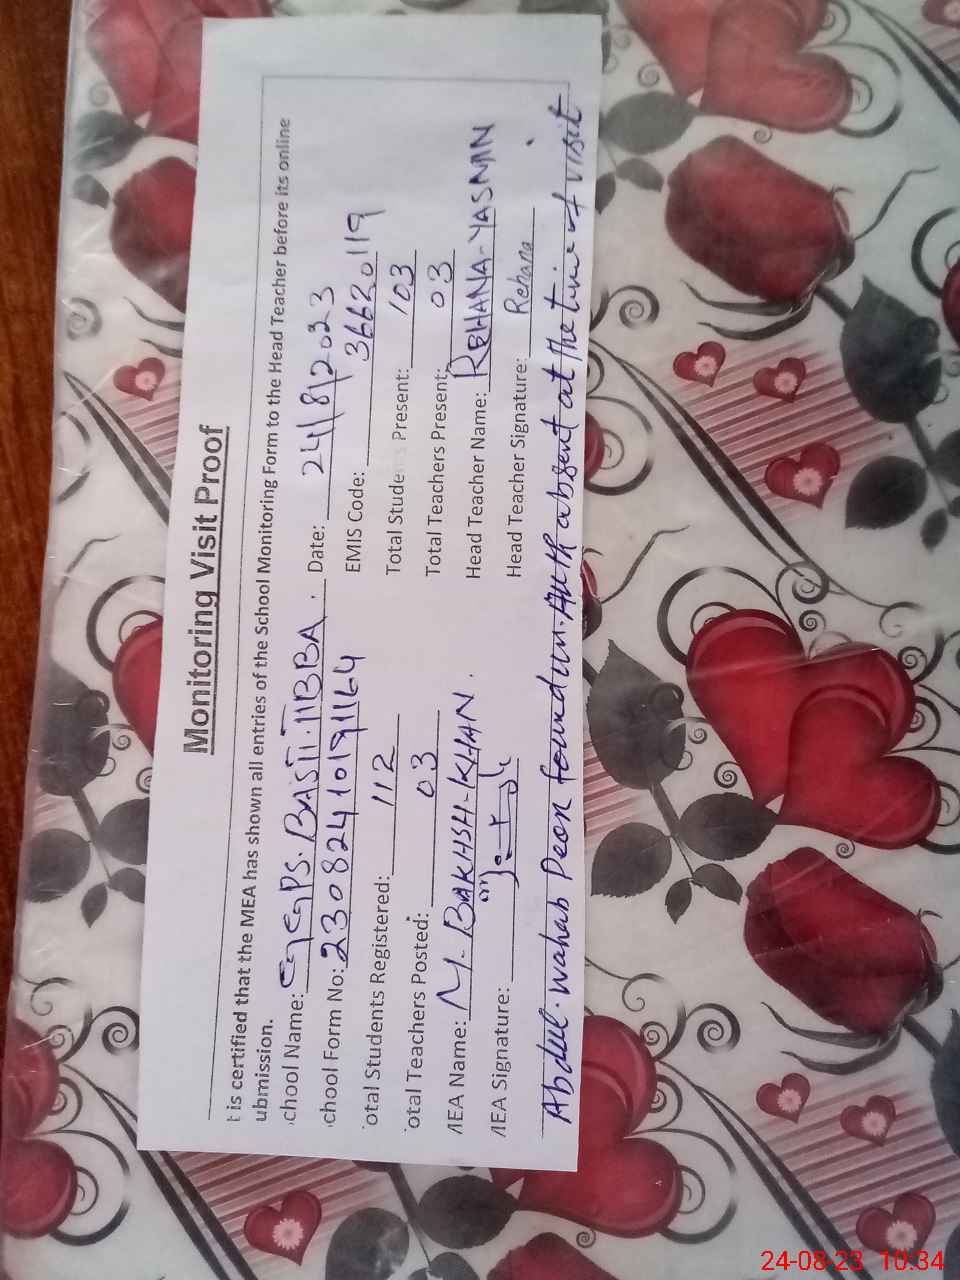 Monitoring Visit Proof
t is certified that the MEA has shown all entries of the School Monitoring Form to the Head Teacher before its online
ubmission.
chool Name: GGPS. BASTI. TIBBA. Date: 24/8/2023
chool Form No: 23082410191164 EMIS Code: 36620119
otal Students Registered: 112 Total Students Present: 103
otal Teachers Posted: 03 Total Teachers Present: 03
MEA Name: M. BAKHSH-KHAN. Head Teacher Name: REHANA-YASMIN
MEA Signature: Head Teacher Signature: Rehana
Abdul. wahab Peon found un-Auth absent at the time of visit.
24-08-23 10:34